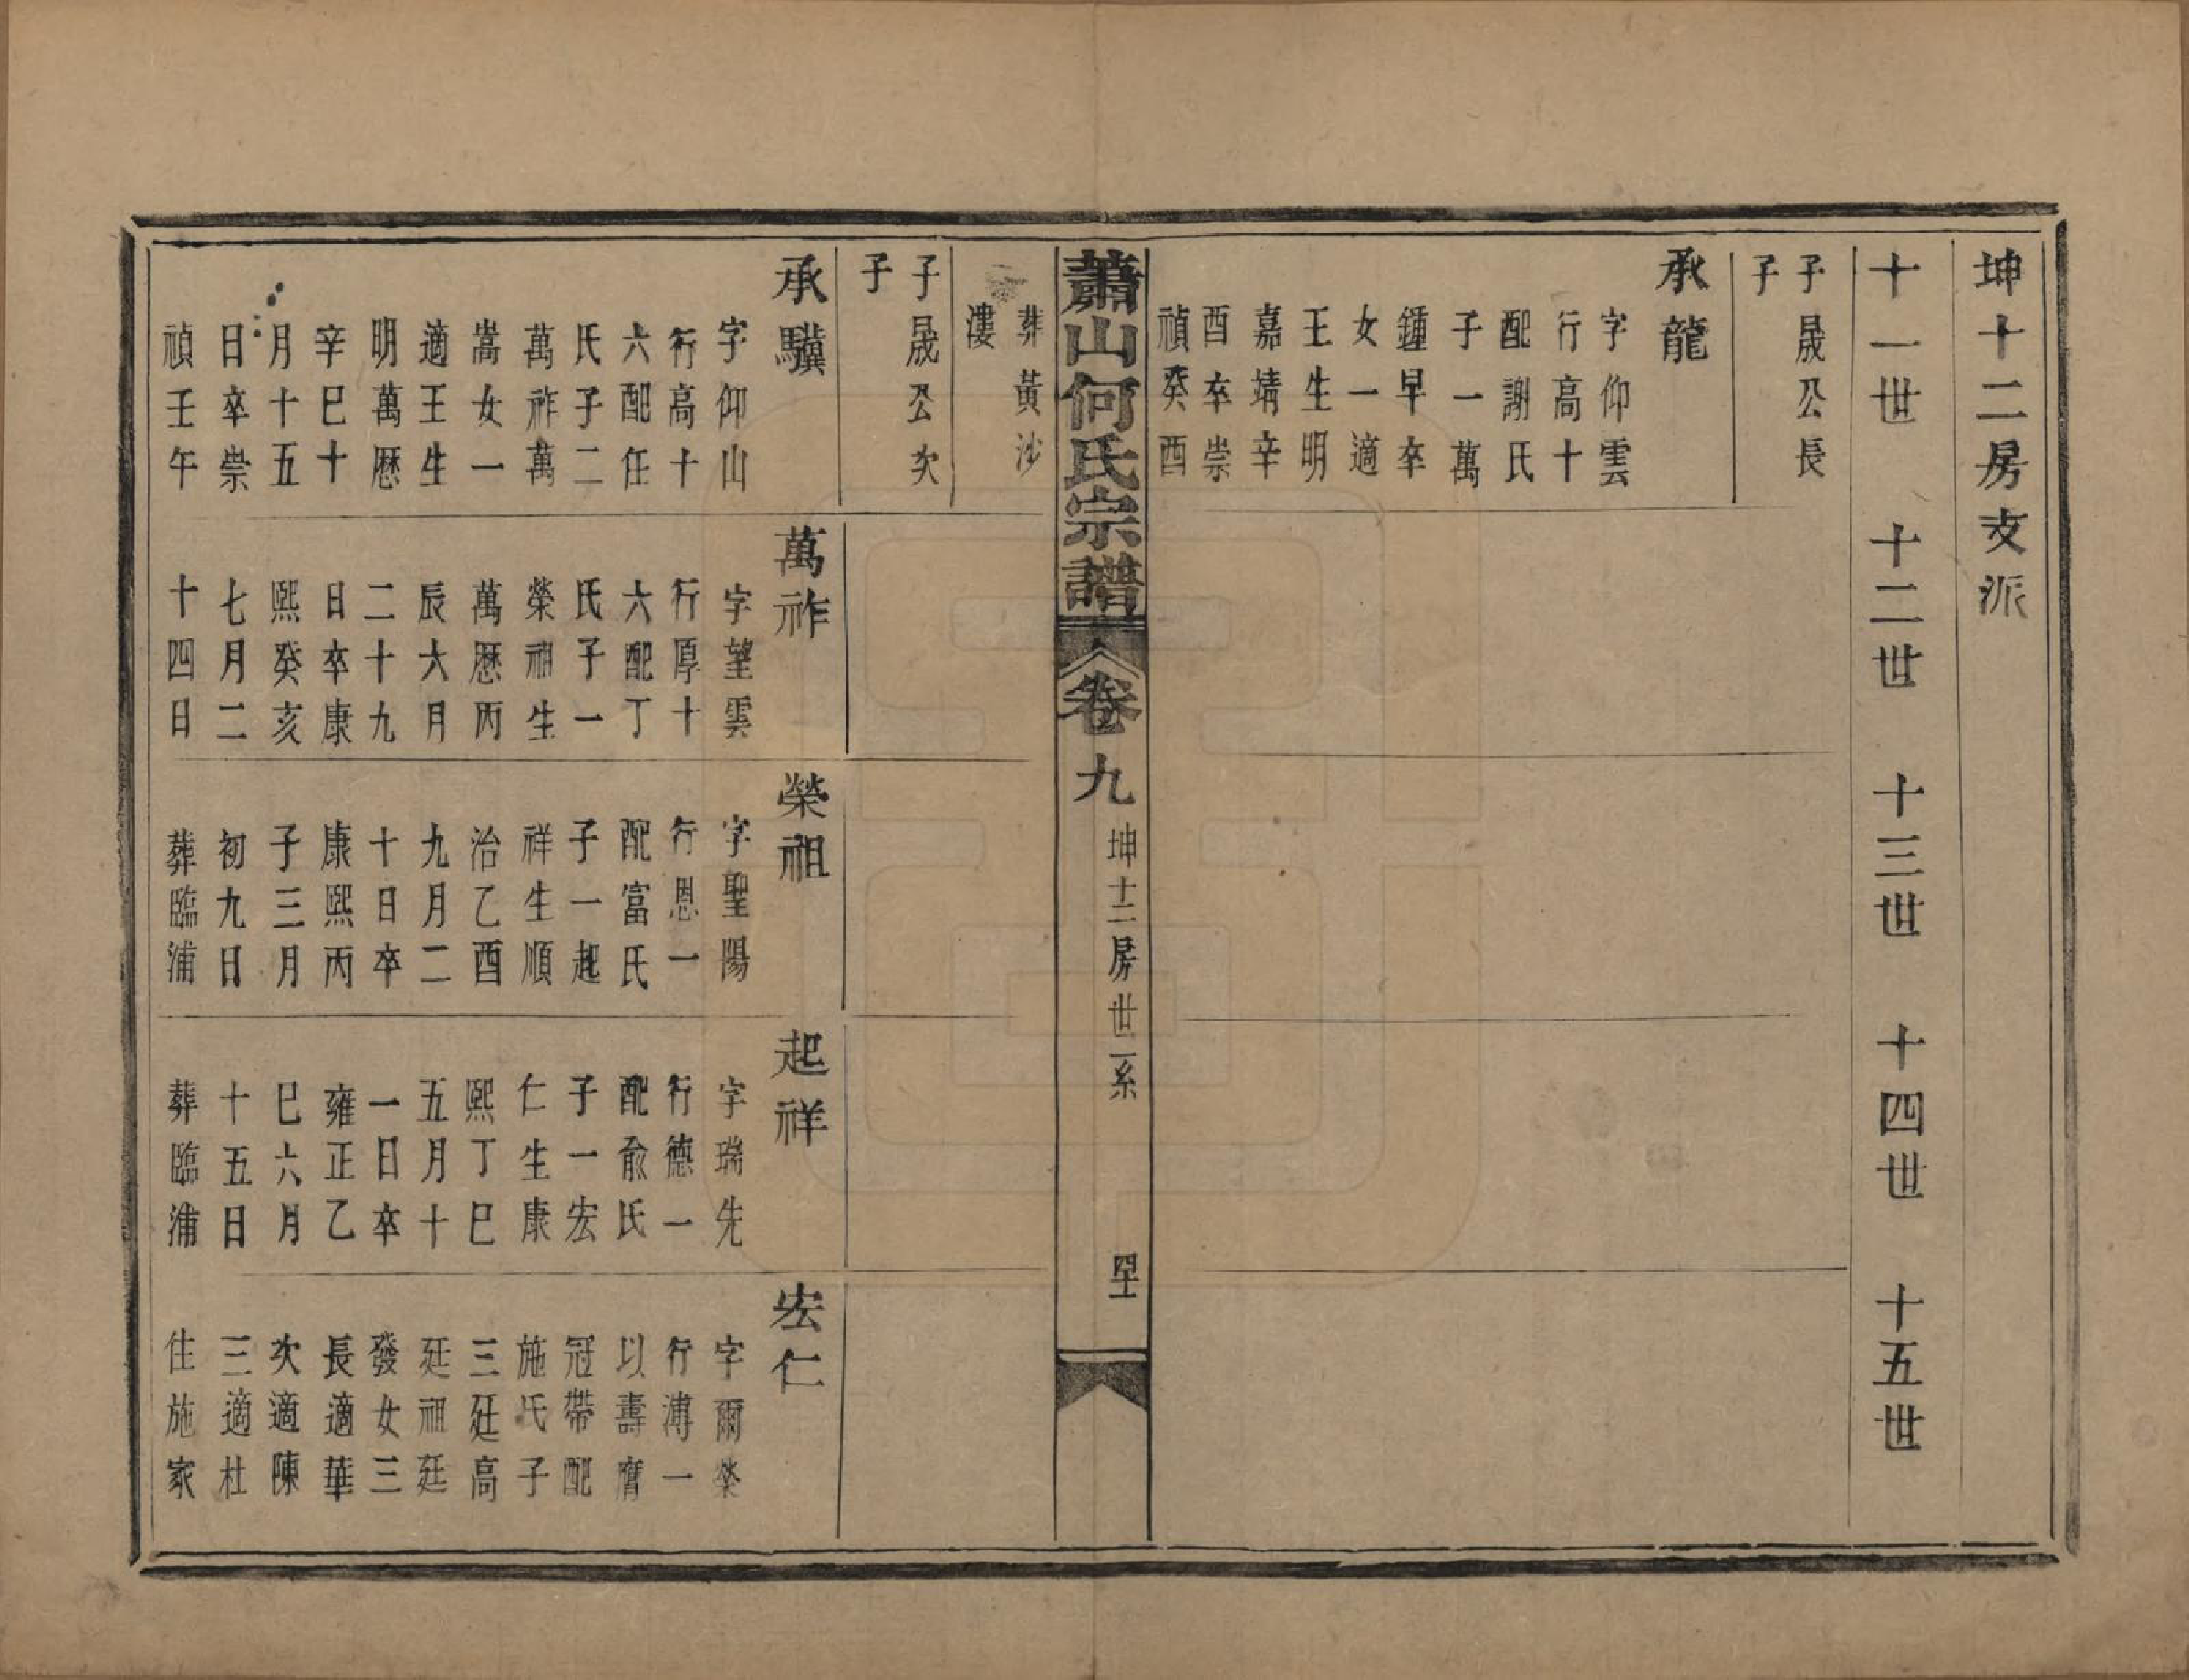 坤十二房支派
十一世
十二世
十三世
十四世
十五世
子晟公長
子
承龍
字仰雲
行高十
配謝氏
子一萬
鍾早卒
女一適
王生明
嘉靖辛
酉卒崇
禎癸酉
蕭山何氏宗譜
卷九
坤十二房世系
四十
葬黃沙
漊
子晟公次
子
承驥
字仰山
行高十
六配任
氏子二
萬祚萬
嵩女一
適王生
明萬歷
辛巳十
月十五
日卒崇
禎壬午
萬祚
字望雲
行厚十
六配丁
氏子一
榮祖生
萬歷丙
辰六月
二十九
日卒康
熙癸亥
七月二
十四日
榮祖
字聖陽
行恩一
配富氏
子一起
祥生順
治乙酉
九月二
十日卒
康熙丙
子三月
初九日
葬臨浦
起祥
字瑞先
行德一
配俞氏
子一宏
仁生康
熙丁巳
五月十
一日卒
雍正乙
巳六月
十五日
葬臨浦
宏仁
字爾榮
行溥一
以壽膺
冠帶配
施氏子
三廷高
廷祖廷
發女三
長適華
次適陳
三適杜
住施家